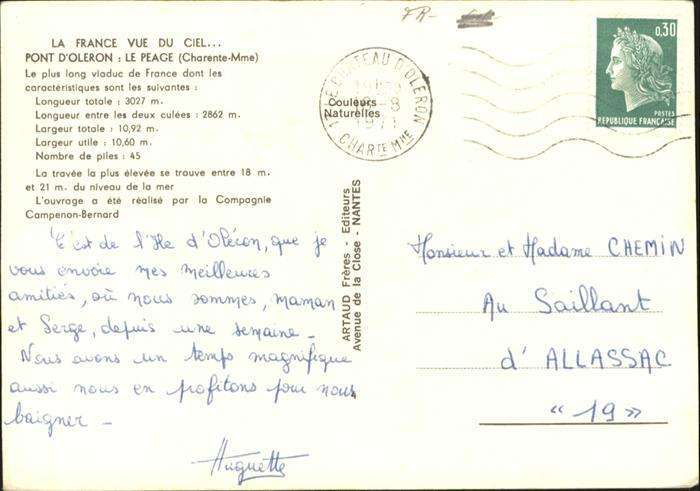 FR-
LA FRANCE VUE DU CIEL...
PONT D'OLERON : LE PEAGE (Charente-Mme)
Le plus long viaduc de France dont les
caractéristiques sont les suivantes :
Longueur totale : 3027 m.
Longueur entre les deux culées : 2862 m.
Largeur totale : 10,92 m.
Largeur utile : 10,60 m.
Nombre de piles : 45
La travée la plus élevée se trouve entre 18 m.
et 21 m. du niveau de la mer
L'ouvrage a été réalisé par la Compagnie
Campenon-Bernard
C'est de l'Ile d'Oléron, que je
vous envoie mes meilleures
amitiés, où nous sommes, maman
et Serge, depuis une semaine -
Nous avons un temps magnifique
aussi nous en profitons pour nous
baigner -
Huguette
Couleurs
Naturelles
LE CHATEAU D'OLERON
-8
1971
CHARTE MME
ARTAUD Frères - Editeurs
Avenue de la Close - NANTES
0,30
POSTES
REPUBLIQUE FRANÇAISE
Monsieur et Madame CHEMIN
Au Saillant
d'ALLASSAC
"19"